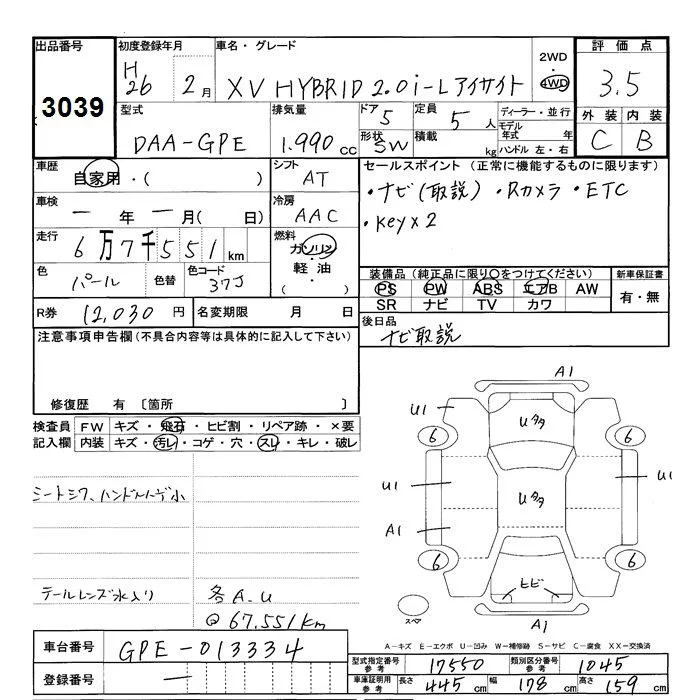 出品番号 3039
初度登録年月 H26年 2月
車名・グレード XV HYBRID 2.0i-L アイサイト
2WD・4WD
評価点 3.5
外装 C 内装 B
型式 DAA-GPE
排気量 1.990 cc
ドア 5
形状 SW
定員 5人
積載 kg
ディーラー・並行
モデル年式 年
ハンドル 左・右
車歴 自家用・( )
シフト AT
セールスポイント (正常に機能するものに限ります)
・ナビ(取説) ・Rカメラ ・ETC
・Key×2
車検 ー年ー月( 日)
冷房 AAC
走行 6万7千551km
燃料 ガソリン・軽油 ( )
色 パール 色替
色コード 37J
装備品 (純正品に限り○をつけてください)
PS PW ABS エアB AW
SR ナビ TV カワ
新車保証書 有・無
R券 12,030円
名変期限 月 日
後日品 ナビ取説
注意事項申告欄(不具合内容等は具体的に記入して下さい)
修復歴 有 〔箇所 〕
検査員記入欄
FW キズ・飛石・ヒビ割・リペア跡・×要
内装 キズ・汚レ・コゲ・穴・スレ・キレ・破レ
シートシワ、ハンドルハゲ小
テールレンズ水入り
各A.U
@67.551km
A1
U1
6
6
Uタタ
U1
U1
Uタタ
A1
6
6
ヒビ
スペア
A1
A-キズ E-エクボ U-凹み W-補修跡 S-サビ C-腐食 XX-交換済
車台番号 GPE-013334
登録番号 ー
型式指定番号 参考 17550
類別区分番号 参考 1045
車庫証明用 参考 長さ 445cm 幅 178cm 高さ 159cm